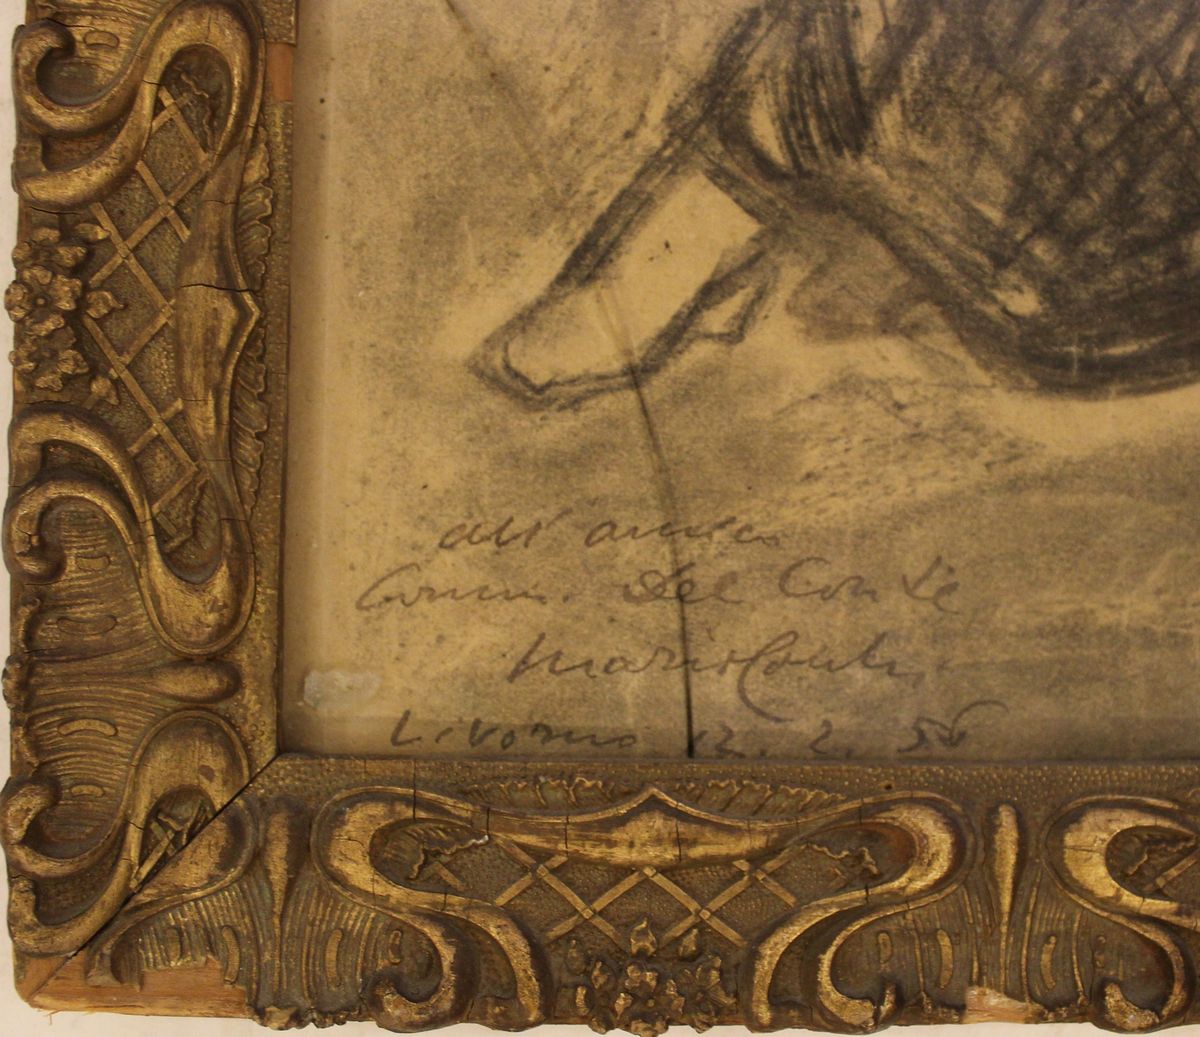 all' amico
Comm. Del Conte
Mario Conti
Livorno 12. 2. 56